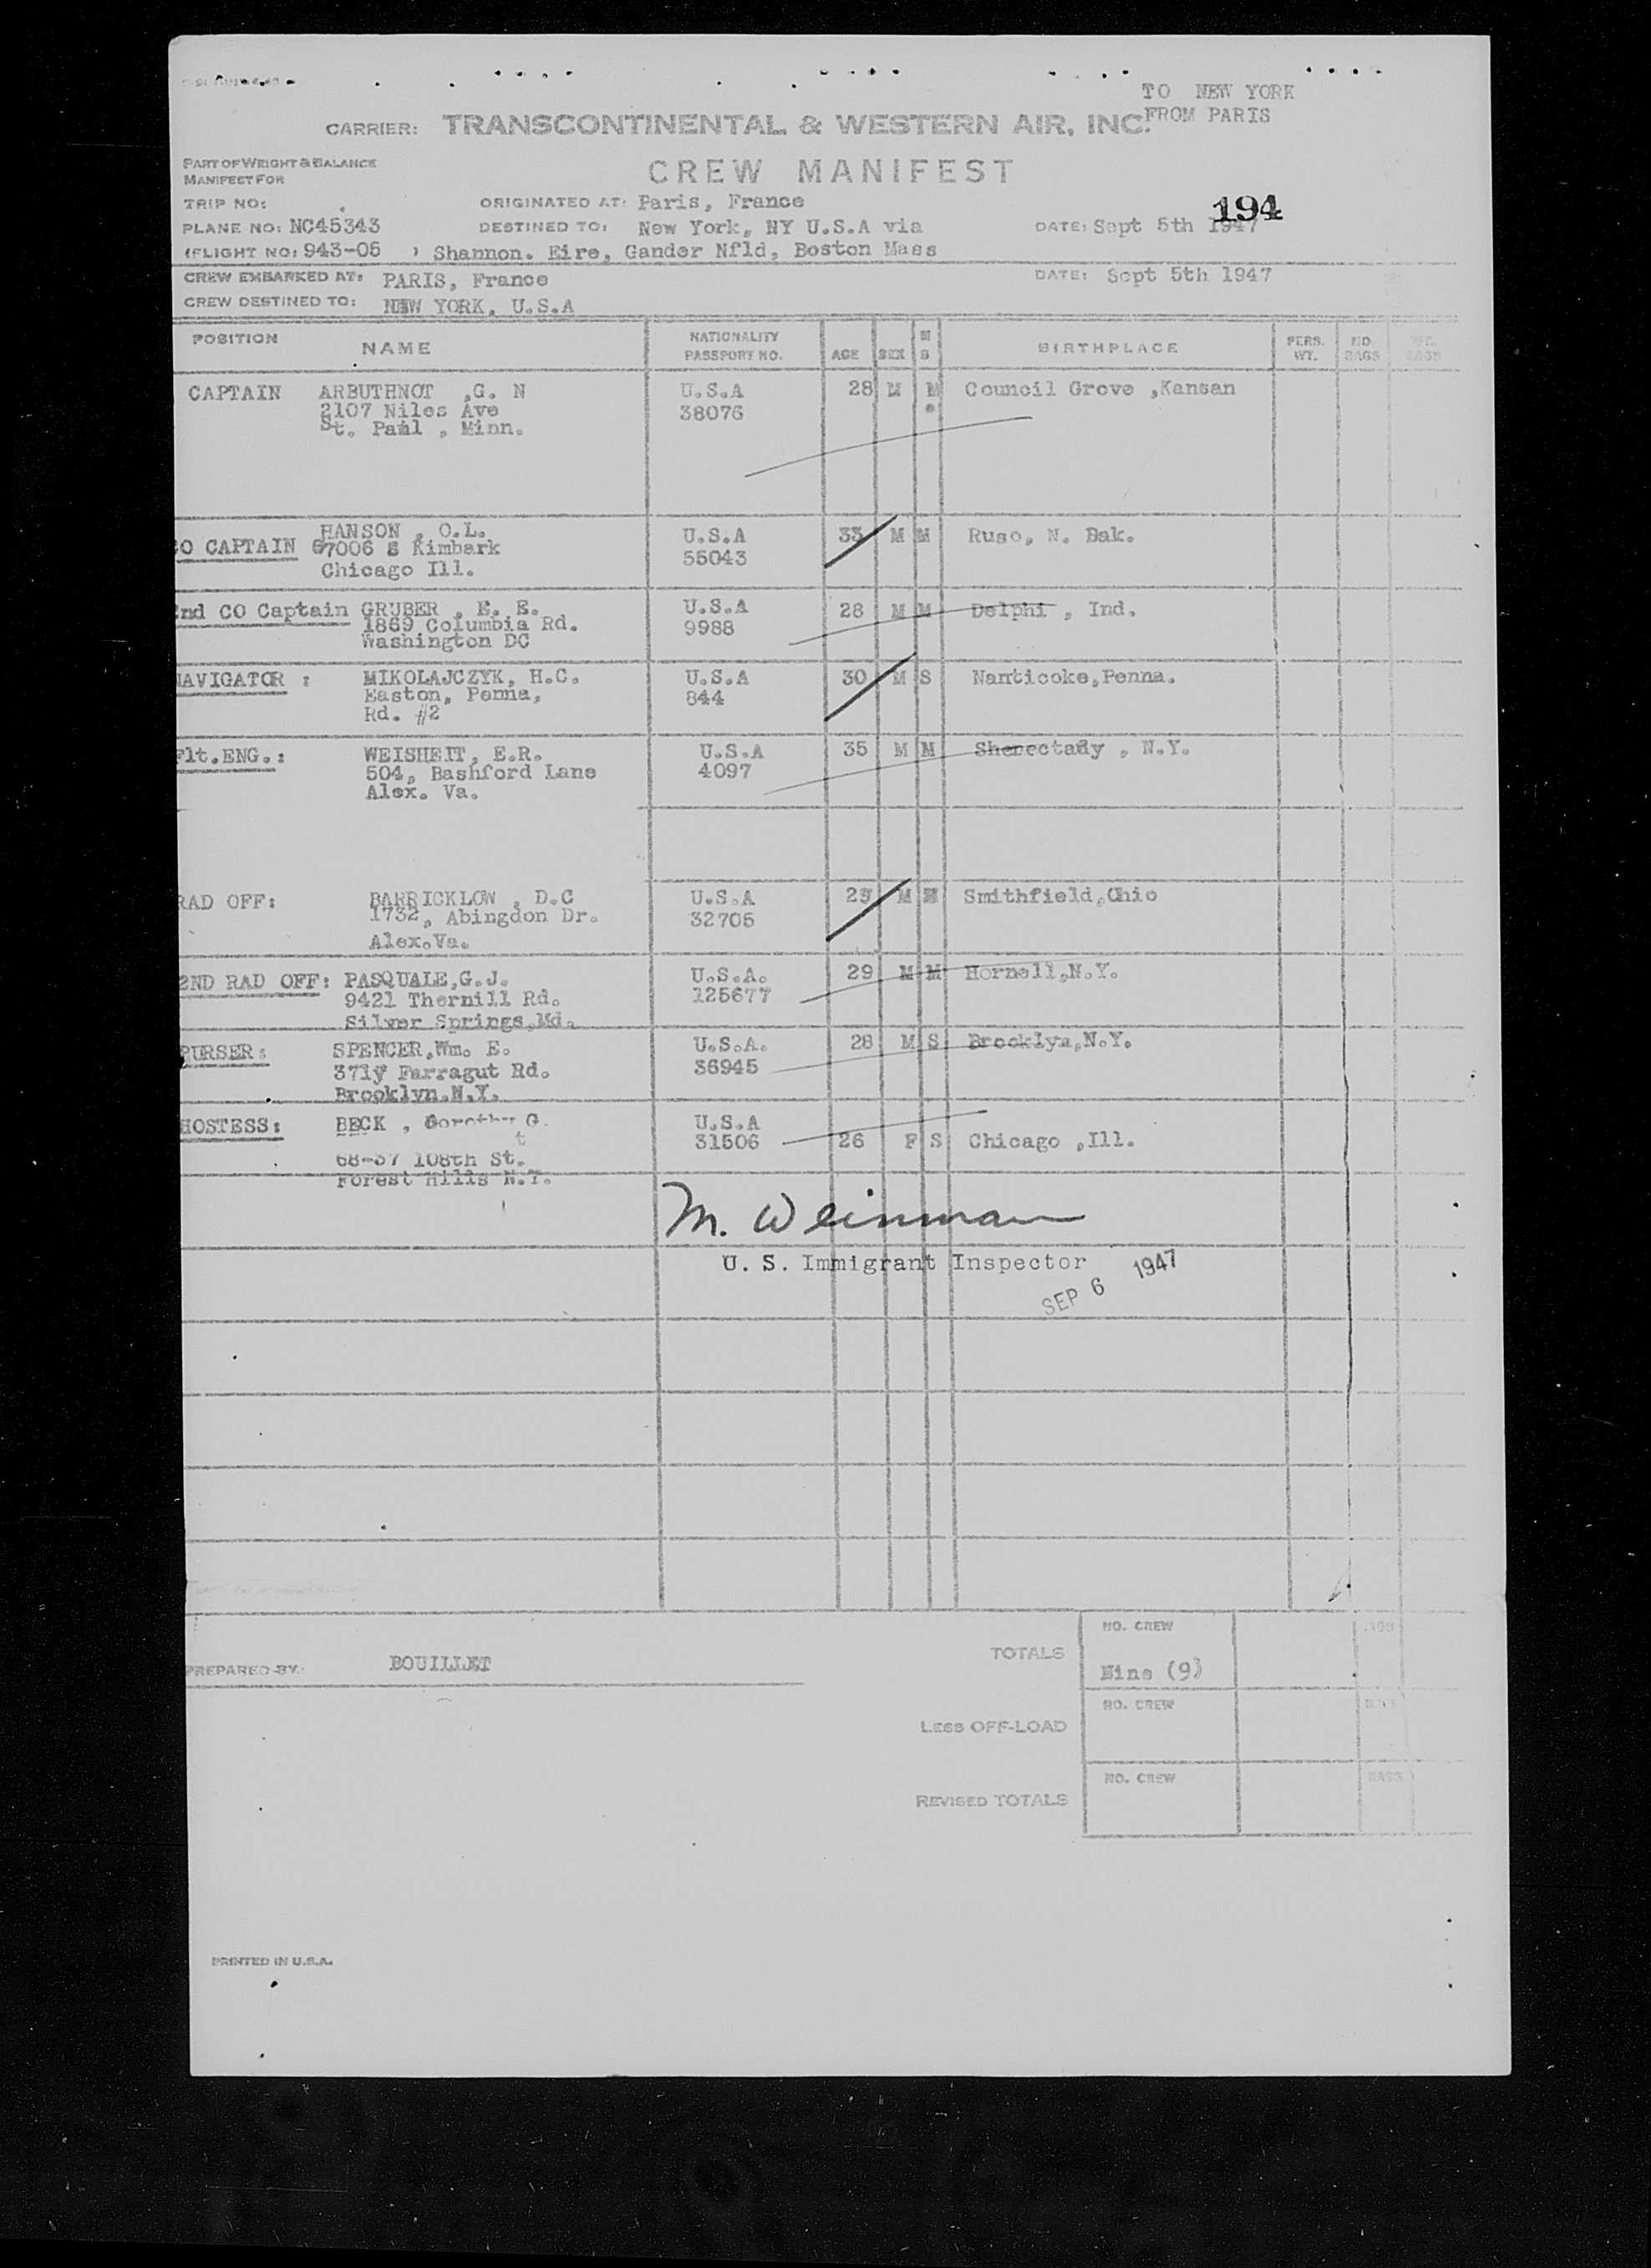 TO NEW YORK
FROM PARIS
CARRIER: TRANSCONTINENTAL & WESTERN AIR, INC.
PART OF WEIGHT & BALANCE
MANIFEST FOR
CREW MANIFEST
TRIP NO: ORIGINATED AT: Paris, France 194
PLANE NO: NC45343 DESTINED TO: New York, NY U.S.A via DATE: Sept 5th 1947
(FLIGHT NO: 943-05 ) Shannon. Eire, Gander Nfld, Boston Mass
CREW EMBARKED AT: PARIS, France DATE: Sept 5th 1947
CREW DESTINED TO: NEW YORK, U.S.A
POSITION NAME NATIONALITY PASSPORT NO. AGE SEX M S BIRTHPLACE PERS. WT. NO. BAGS WT. BAGS
CAPTAIN ARBUTHNOT ,G. N U.S.A 28 M M Council Grove ,Kansan
2107 Niles Ave 38076
St. Paul , Minn.
HANSON , O.L. U.S.A 33 M M Ruso, N. Dak.
CO CAPTAIN 67006 S Kimbark 55043
Chicago Ill.
2nd CO Captain GRUBER , E. E. U.S.A 28 M M Delphi , Ind.
1869 Columbia Rd. 9988
Washington DC
NAVIGATOR : MIKOLAJCZYK, H.C. U.S.A 30 M S Nanticoke,Penna.
Easton, Penna, 844
Rd. #2
Flt.ENG.: WEISHEIT, E.R. U.S.A 35 M M Shenectady , N.Y.
504, Bashford Lane 4097
Alex. Va.
RAD OFF: BARRICKLOW , D.C U.S.A M M Smithfield,Ohio
1732, Abingdon Dr. 32705
Alex.Va.
2ND RAD OFF: PASQUALE,G.J. U.S.A. 29 M M Hornell,N.Y.
9421 Thernill Rd. 125677
Silver Springs,Md.
PURSER: SPENCER,Wm. E. U.S.A. 28 M S Brooklyn,N.Y.
Farragut Rd. 36945
Brooklyn.N.Y.
HOSTESS: BECK , Dorothy G. U.S.A
t 31506 26 F S Chicago ,Ill.
68-37 108th St.
Forest Hills N.Y.
M. Weinman
U. S. Immigrant Inspector
SEP 6 1947
PREPARED BY: BOUILLET
TOTALS NO. CREW
Nine (9)
LESS OFF-LOAD NO. CREW BAGS
REVISED TOTALS NO. CREW BAGS
PRINTED IN U.S.A.